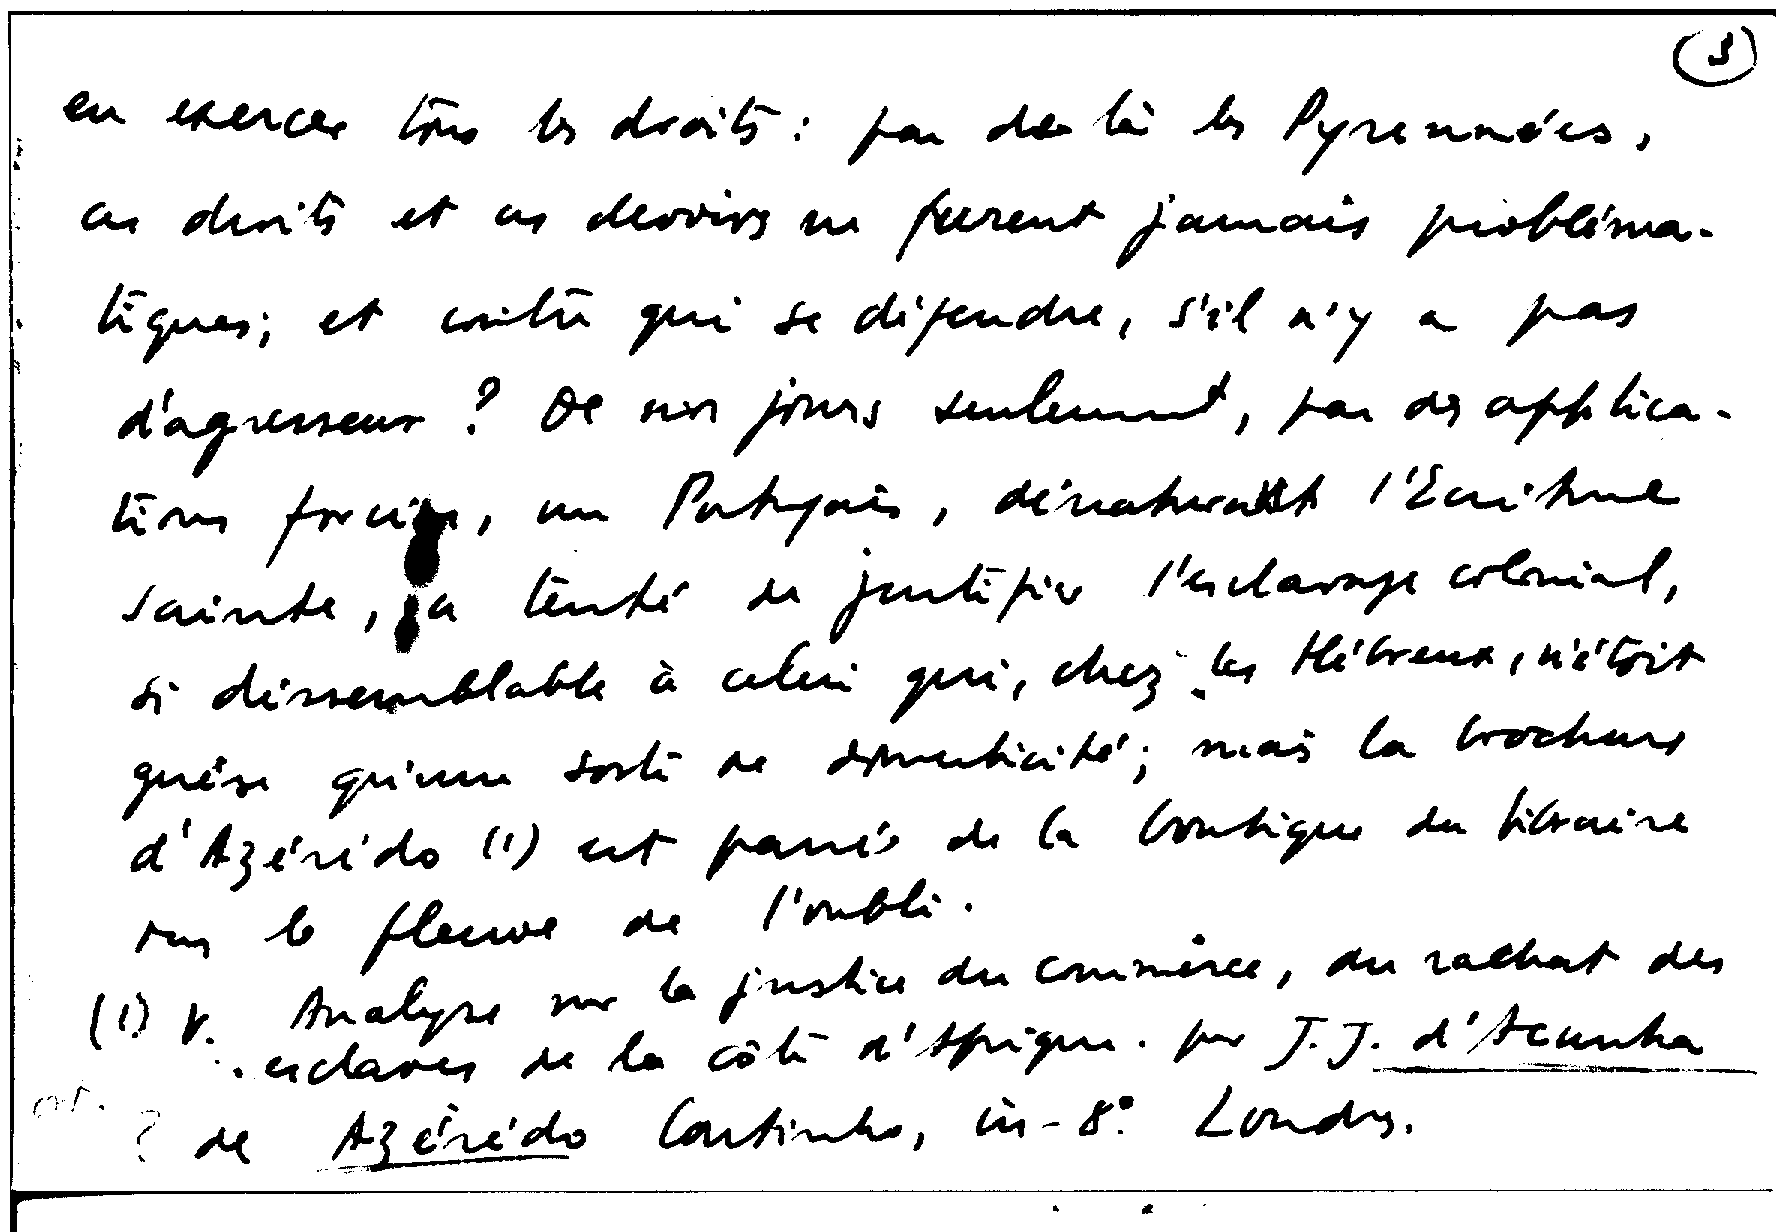 3
en exercer tous les droits : par de là les Pyrennées,
ces droits et ces devoirs ne furent jamais probléma-
tiques ; et contre qui se défendre, s'il n'y a pas
d'agresseur ? De nos jours seulement, par des applica-
tions forcées, un Portugais, dénaturant l'Ecriture
sainte, a tenté de justifier l'esclavage colonial,
si dissemblable à celui qui, chez les Hébreux, n'étoit
guère qu'une sorte de domesticité ; mais la brochure
d'Azérédo (1) est passée de la boutique du libraire
sur le fleuve de l'oubli.
(1) V. Analyse sur la justice du commerce, du rachat des
esclaves de la côte d'Afrique. par J. J. d'Acunha
? de Azérédo Coutinho, in-8°. Londres.